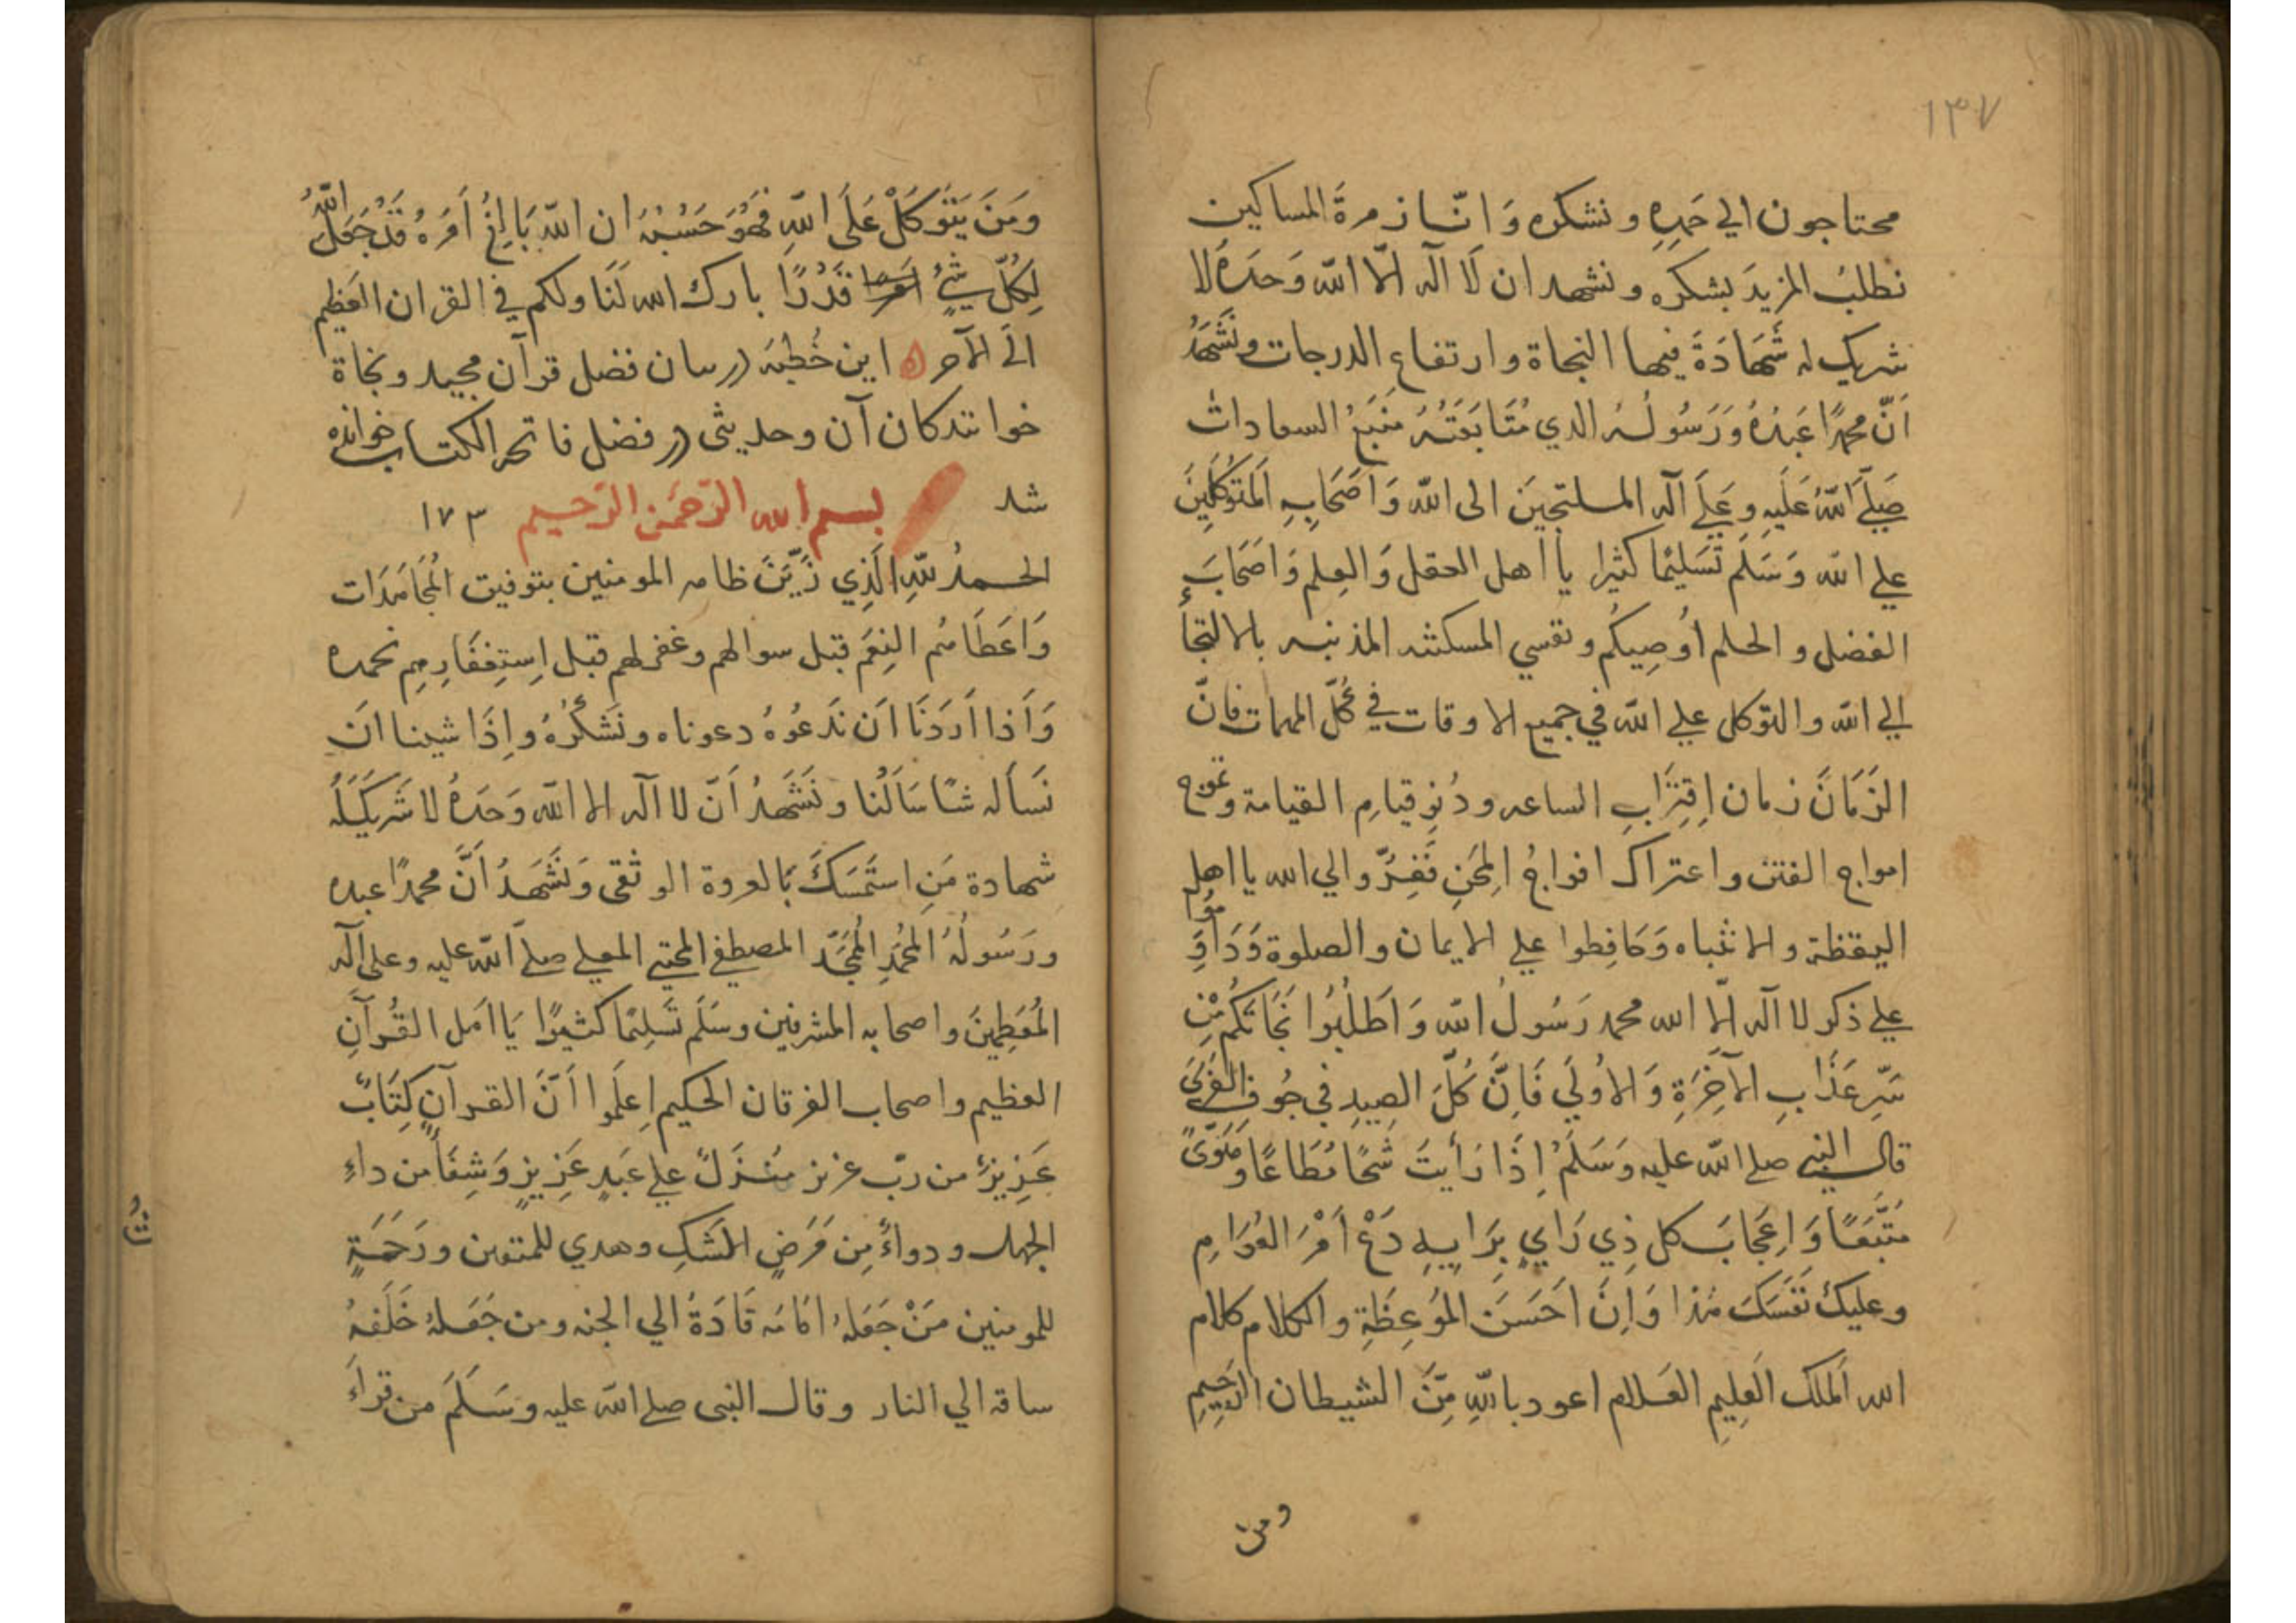 ١٣٧
محتاجون الي حَمدِهِ ونشكره وَانّا زمرةَ المساكين
نطلبُ المزيدَ بشكره ونشهد ان لَا اله الّا الله وَحدَهُ لا
شريك له شَهَادَةً فيها النجاة وارتفاع الدرجات ونَشهَدُ
اَنّ محمدًا عَبدُهُ وَرَسُولُهُ الذي مُتَابَعَتُهُ مَنبَعُ السعادات
صَلَّي اللهُ عَلَيهِ وعَلَي آله الملتجينَ الى الله وَاَصَحَابِهِ المُتَوَكِّلِينَ
علي الله وَسَلَّم تَسلِيمًا كثيرا يا اهل العقل وَالعِلم وَاصَحَابَ
الفضل والحلم اُوصِيكُم ونفسي المسكنه المذنبه بالالتجأ
الي الله والتوكل علي الله في جميع الاوقات في كُلّ المهمات فانّ
الزَمَانَ زمان اِقتِرَابِ الساعه ودُنِو قيامِ القيامة وتموّج
امواج الفتن واعتراك افواجُ المِحَنِ فَفِرّوا الي الله يا اهل
اليقظة والانتباه وَحَافِظوا علي الايمان والصلوة وَدَاوِمُوا
علي ذكر لا اله الّا الله محمد رَسُولُ الله وَاَطلُبُوا نَجَاتَكُم مِن
سِرِّ عَذَابِ الآخِرَةِ وَالاُولَي فَاِنَّ كُلَّ الصيدِ في جُوفِ الفَرَىَ
قال النبي صلي الله عليه وَسَلَّمُ اِذَا رَأيتَ شُحًا مُطَاعًا وَهَوًىً
مُتَّبَعًا وَاِعجَابَ كل ذِي رَايٍ بِرَايِهِ دَعْ اَمْرَ العَوَامِ
وعليكَ نَفسَكَ هٰذا وَاِنَّ اَحَسَنَ المَوعِظَةِ والكلام كلام
الله اَلملك العَلِيمِ العَلام اعوذ باللهِ مِنَ الشيطان الرَجِيمِ
ومن
ومَنَ يَتَوَكَلْ عَلَى اللهِ فَهُوَ حَسُبُهُ ان اللهَ بَالِغُ اَمَرَهُ قَدْ جَعَلَ اللهُ
لِكُلّ شَيْءٍ قَدْرًا بارك الله لَنَا ولكم في القران العَظِيم
الَي الآخر ه این خُطبَه در بیان فضل قرآن مجید ونجاة
خوانندکان آن وحدیثی در فضل فاتحه الکتاب خوانده
شد بسم الله الرّحمَن الرّحيم ١٧٣
الحمدُ للهِ الَّذِي زَيَّنَ ظاهر المومنين بتوفيق المُجَاهَدَات
وَاَعَطَاهُم النِعَمَ قبل سوالهم وغفر لهم قبل اِستِغفَارِهِم نحمده
وَاَذا اَردَنَا اَن نَدعُوهُ دعوناه ونَشَكُرُهُ واِذَا شينا اَن
نَسأله شأ سَاَلَنا ونَشَهَدُ اَنّ لا اله الا الله وَحدَهُ لا شَريكَ لَهُ
شهادة مَنِ استَمَسَكَ بَالعروة الوثقى وَنَشَهَدُ اَنَّ محمدًا عبده
ورَسُولُهُ المُحَمَّدِ المُمَجَّد المصطفي المجتبي المعلي صلي الله عليه وعلى آله
المُعَظَمِينَ واصحابه المشرفين وسَلَم تَسَلِيمًا كثيرًا يَا اهل القُرآنِ
العظيم واصحاب الفرقان الحكيم اِعلَموا اَنَّ القرآن كِتَابٌ
عَزِيزٌ من ربّ عزيز مُنزَلٌ علي عَبدٍ عَزِيزٍ وَشِفَأ من داءِ
الجهل ودواءٌ مِن مَرَضِ الشَكِ وهدي للمتقين ورَحَمَةٍ
للمومنين مَنْ جَعَلَهُ اَمَامَه قَادَهُ الي الجنه ومن جَعَلهُ خَلَفهُ
ساقه الي النار وقال النبى صلي الله عليه وسَلَمَ من قرأَ